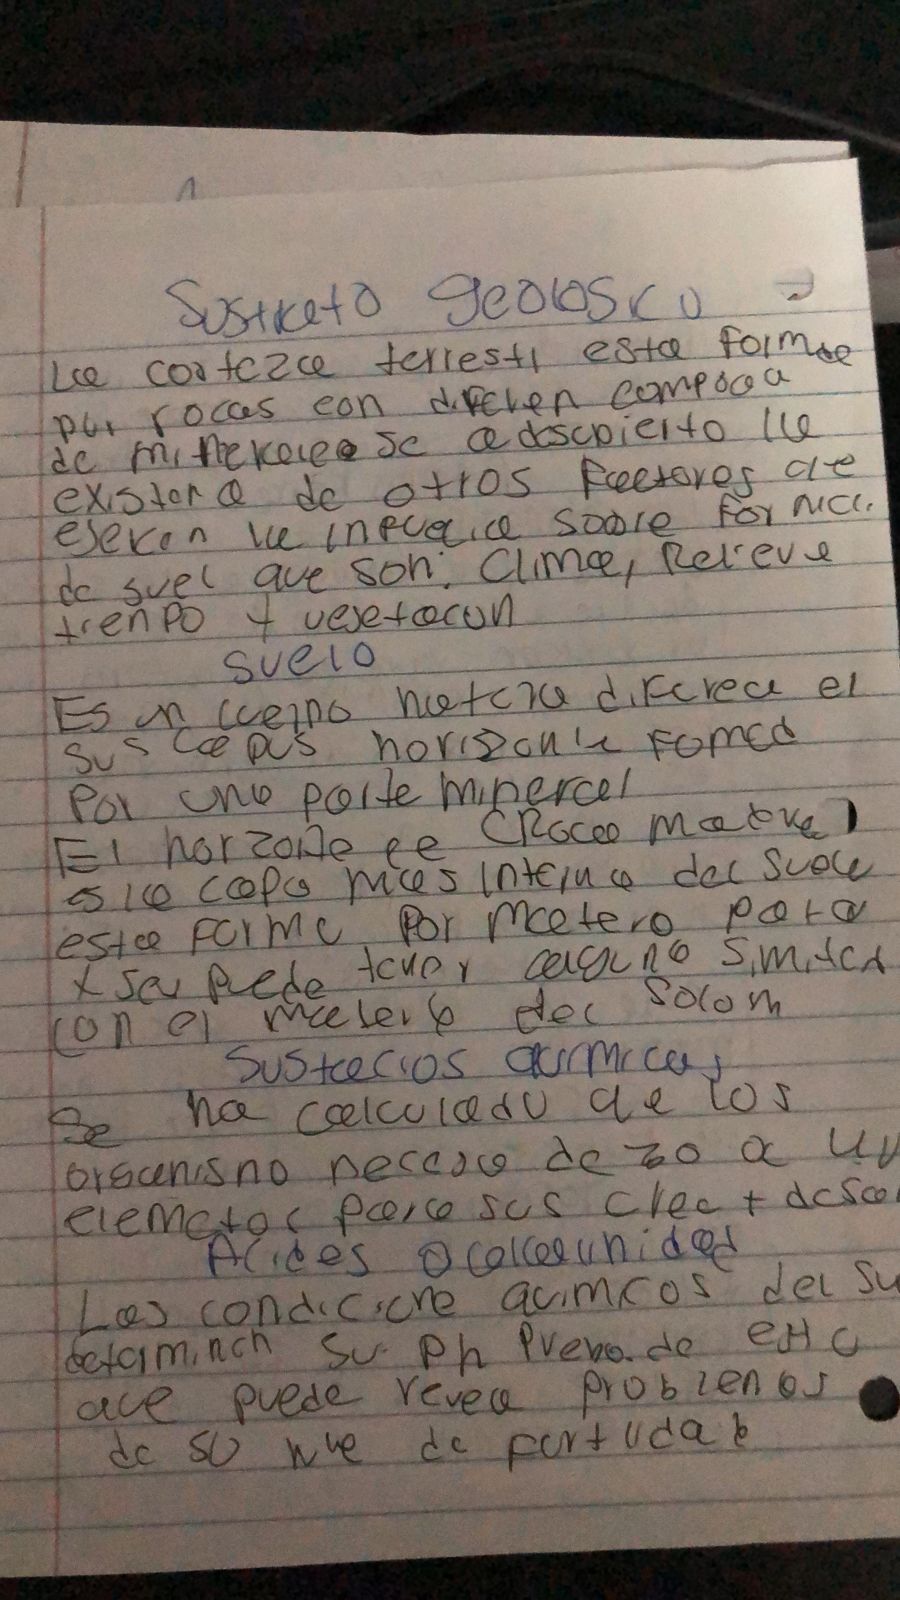 Sustrato geologico
La corteza terrestr esta formae
por rocas con difcren compoca
de minerale se a descpierto la
existenca de otros factores que
ejercn la infueica sobre formci.
de suel que son: Clima, Relieve
tienpo y vegetacun
suelo
Es un cuerpo natcra difcrea el
sus capas horizonte fomca
por una parte minercel
El horzonte ce (Roca matre)
es la capa mas interna del suole
esta forma por matero para
y su puede tener alguno similar
con el materi del solom
Sustacios quimicas
Se ha calculado que los
organisno necesa de 20 a
elemetos para sus crec + desa
Acides o alcalunidad
Las condicicne quimicos del su
determinan su ph Prevo.de
que puede revea problenos
de su nve de